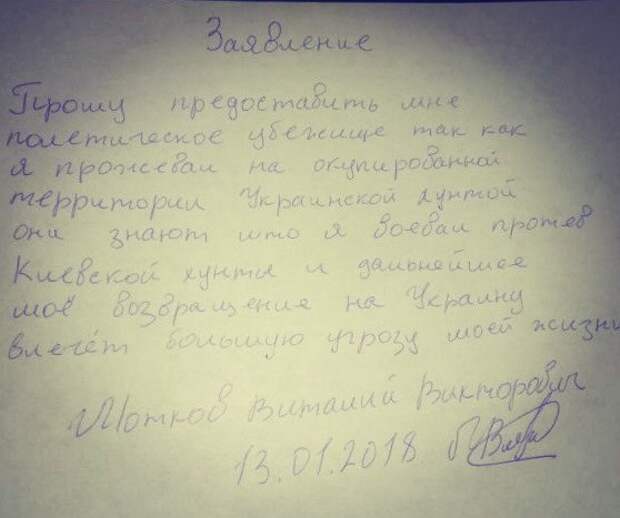 Заявление
Прошу предоставить мне
полетическое убежище так как
я прожевал на окупированной
территории Украинской хунтой
они знают што я воевал протев
Киевской хунты и дальнейшее
моё возвращение на Украину
влечёт большую угрозу моей жизни
Виталий Викторович
13.01.2018